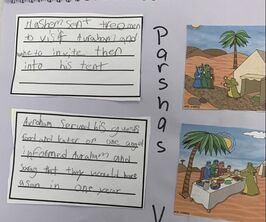 Hashem sent three men
to visit Avraham and
to invite them
into his tent
Avraham served his guests
food and later on one angel
informed Avraham and
Sarai that they would have
a son in one year
Parshas V